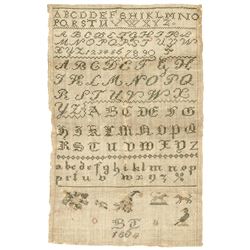 ABCDEFGHIKLMNO
PQRSTUVWXYZ
ABCDEFGHIKL
MNOPQRSTUVW
XYZ1234567890
ABCDEFGHI
KLMNOPQ
RSTUVWX
YZABCDEFG
HIKLMNOPQ
RSTUVWXYZ
abcdefghiklmno
pqrstuvwxyz
BT
1864